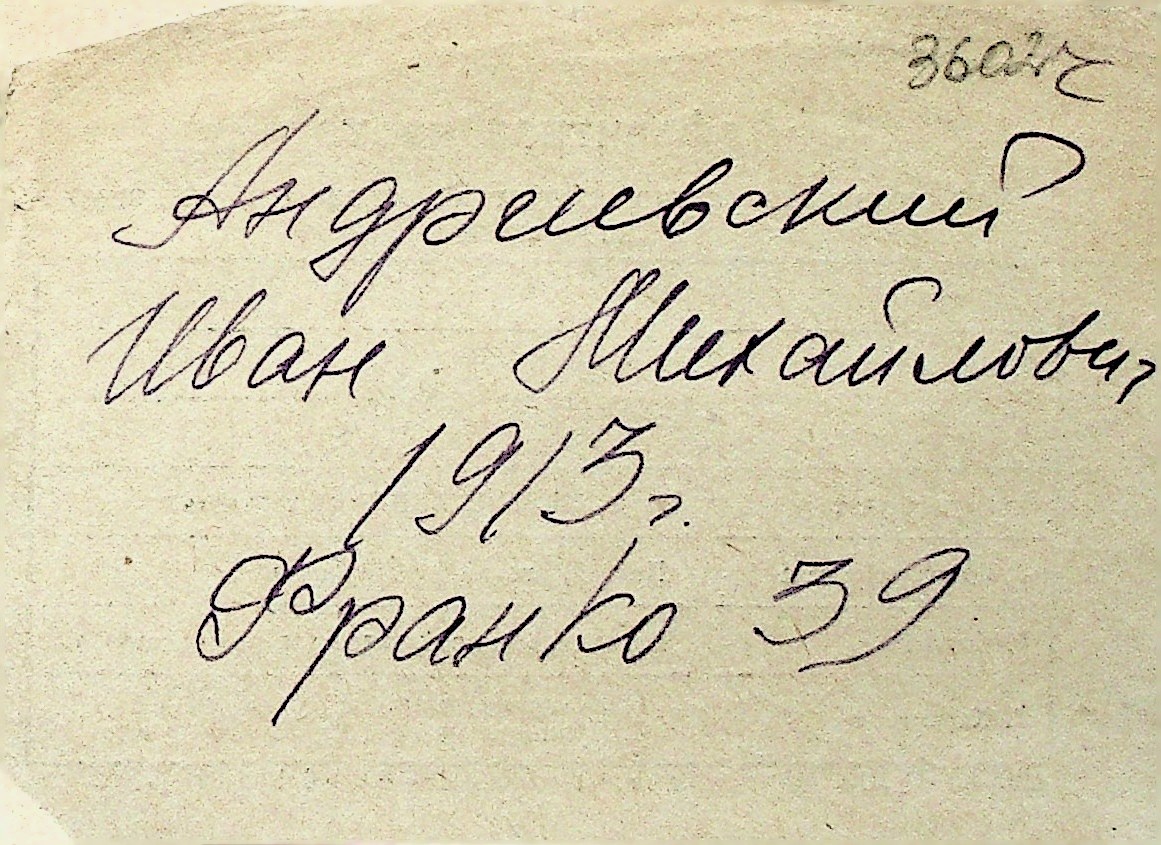 Андриевский
Иван Михайлович
1913 г.
Франко 39